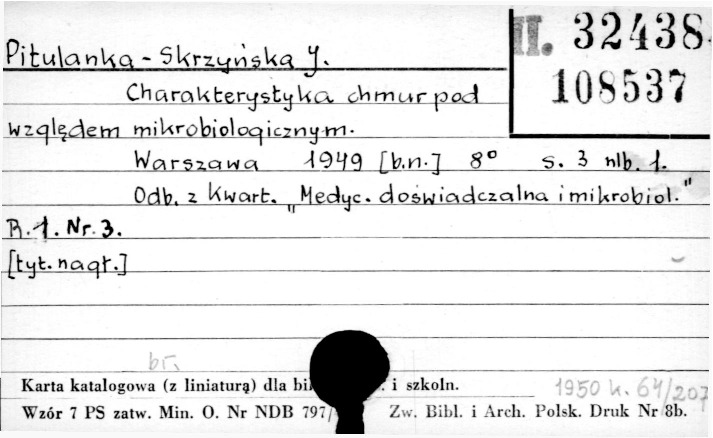 II. 32438
108537
Pitulanka - Skrzyńska J.
Charakterystyka chmur pod
względem mikrobiologicznym.
Warszawa 1949 [b.n.] 8° s. 3 nlb. 1.
Odb. z Kwart. „Medyc. doświadczalna i mikrobiol."
R. 1. Nr. 3.
[tyt. nagł.]
br.
Karta katalogowa (z liniaturą) dla i szkoln.
1950 k. 64/207
Wzór 7 PS zatw. Min. O. Nr NDB 797/ Zw. Bibl. i Arch. Polsk. Druk Nr 8b.